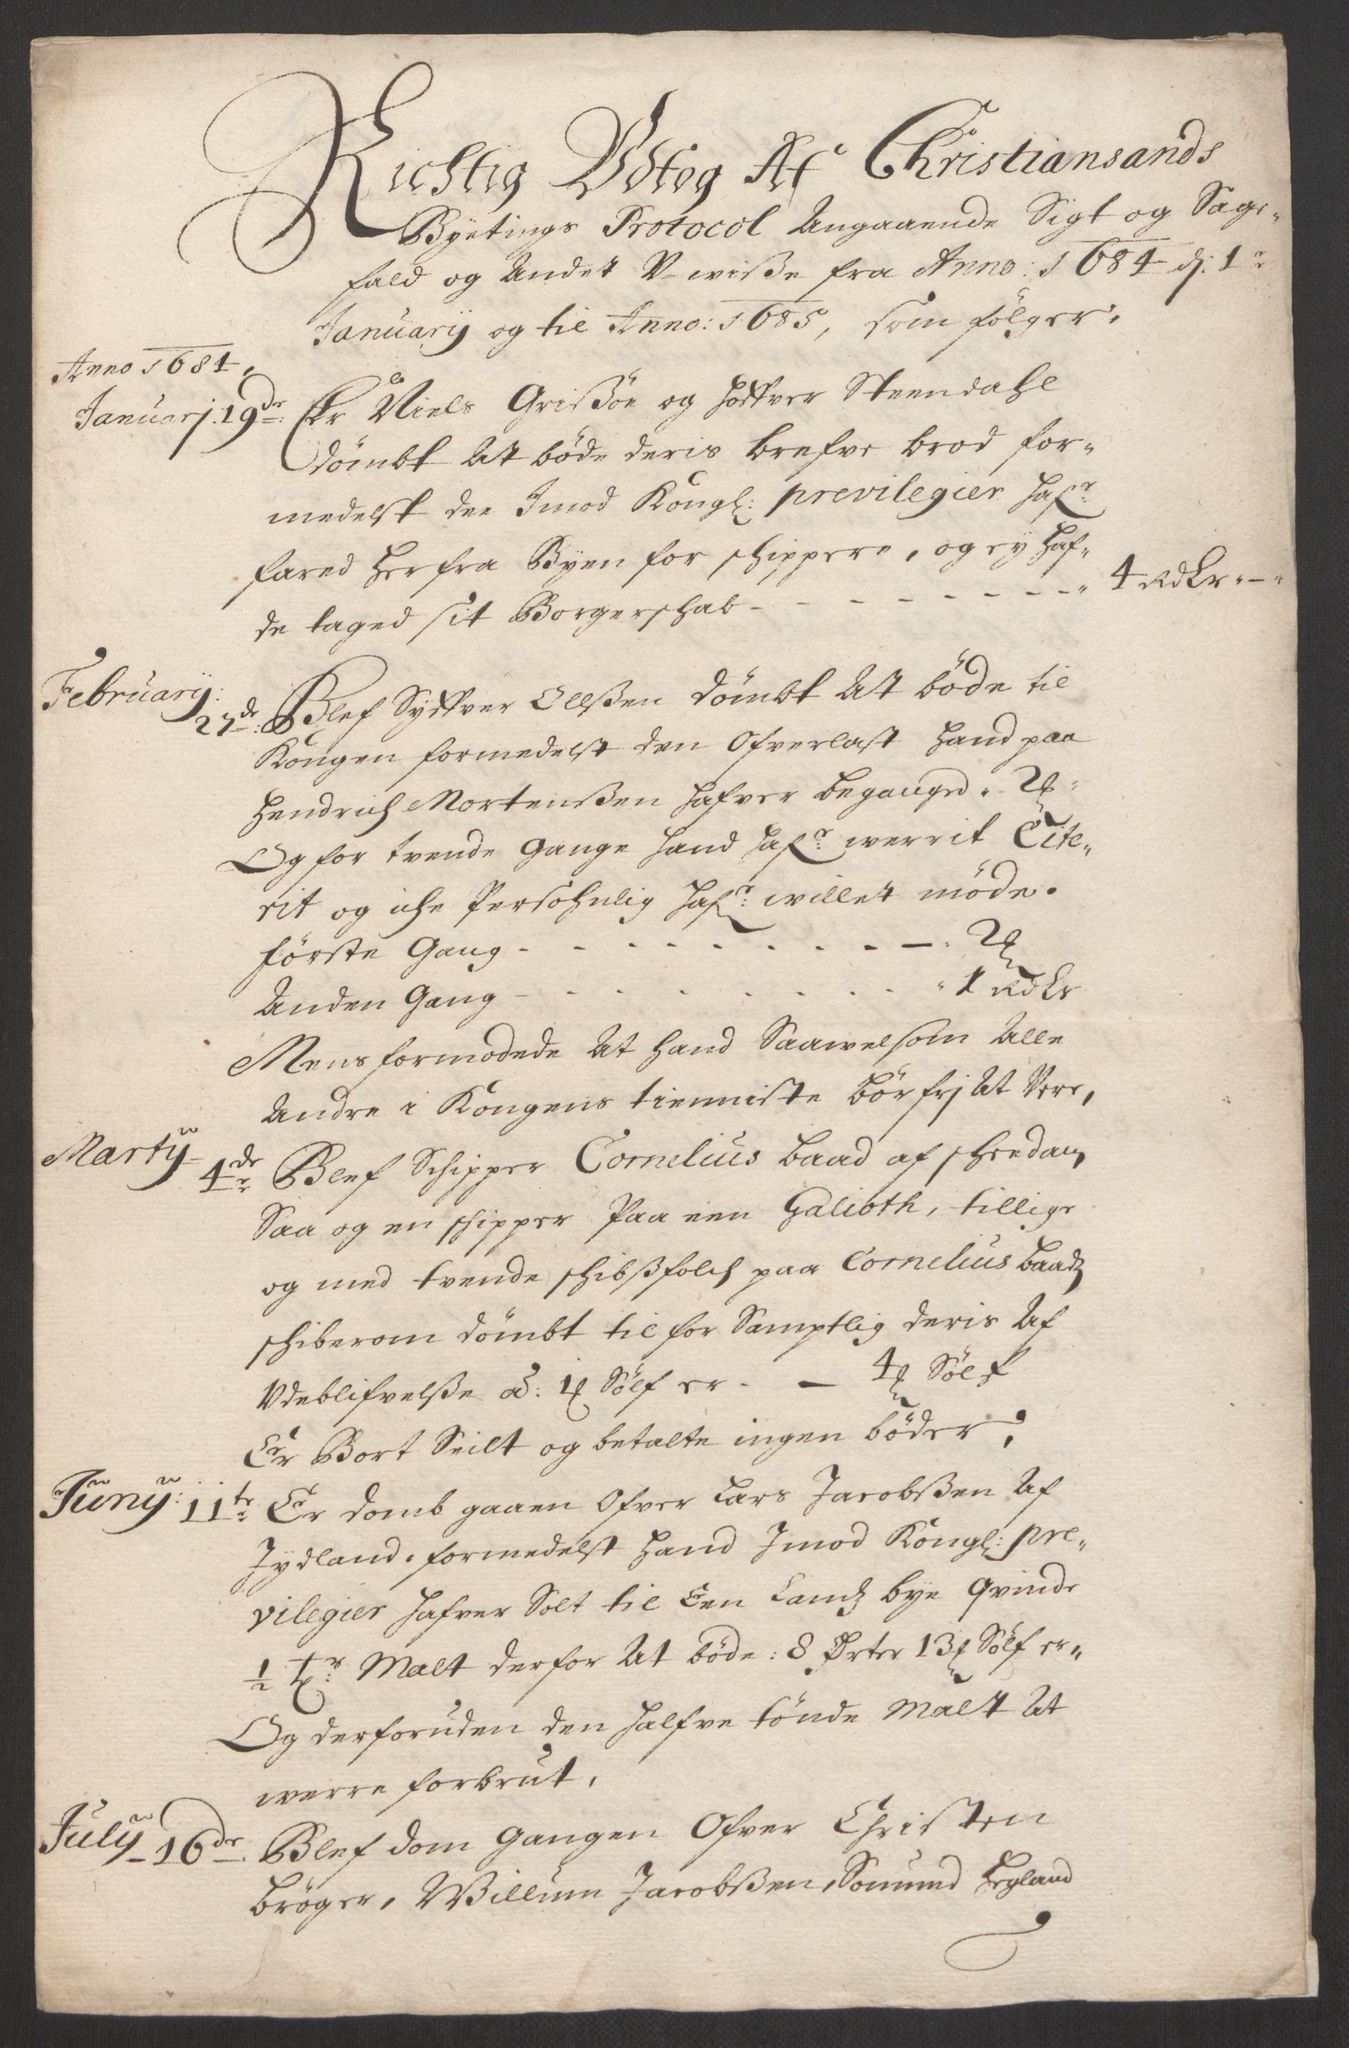 Richtig Udtog Af Christiansands
Byetings Protocol Angaaende Sigt og Sage-
fald og Andet U-wisse fra Anno: 1684 dj: 1e
Januarij og til Anno: 1685, som følger.
Anno 1684.
Januarj. 19de: Er Niels Grisßøe og Steendahl
dømbt At bøde deris brefve brod for-
medelst dee Imod Kongl: previlegier hafr
fared her fra Byen for schippere, og ey haf-
de taged sit Borgerschab - - - - - - - - - 4 Rdlr - -
Februarij:
27de: Blef Syffver Ollßen dømbt At bøde til
Kongen formedelst den Ofverlast hand paa
Hendrich Mortenßen hafver beganged. 2
Og for trende Gange hand hafr: werrit Cite-
rit og iche Persohnlig hafr: willet møde.
første Gang - - - - - - - - - 2
Anden Gang - - - - - - - - - 1 Rdlr
Mens formodede At hand Saawelsom Alle
Andre i Kongens tienniste bør frj At Vere,
Martij 4de Blef Schipper Cornelius baad af scheedam
Saa og en schipper Paa een Galioth, tillige
og med tvende schibßfolch paa Cornelius baadz
schiberom dømbt til for Samptlig deris Af
Udeblifvelße á: 1 Sølf er - - 4 Sølf
Er Bort Seilt og betalte ingen bøder,
Junij: 11te Er domb gaaen Ofver Lars Jacobßen Af
Jydland. formedelst hand Imod Kongl: pre-
vilegier hafver Solt til Een Landz bye Qvinde
1/2 tr Malt derfor At bøde: 8 Ørter 13 Sølf er-
Og derforuden den halfve tønde Malt At
werre forbrut.
Julij 16de. Blef dom Gangen Ofver Christen
brøger, Willum Jacobßen, Heyland